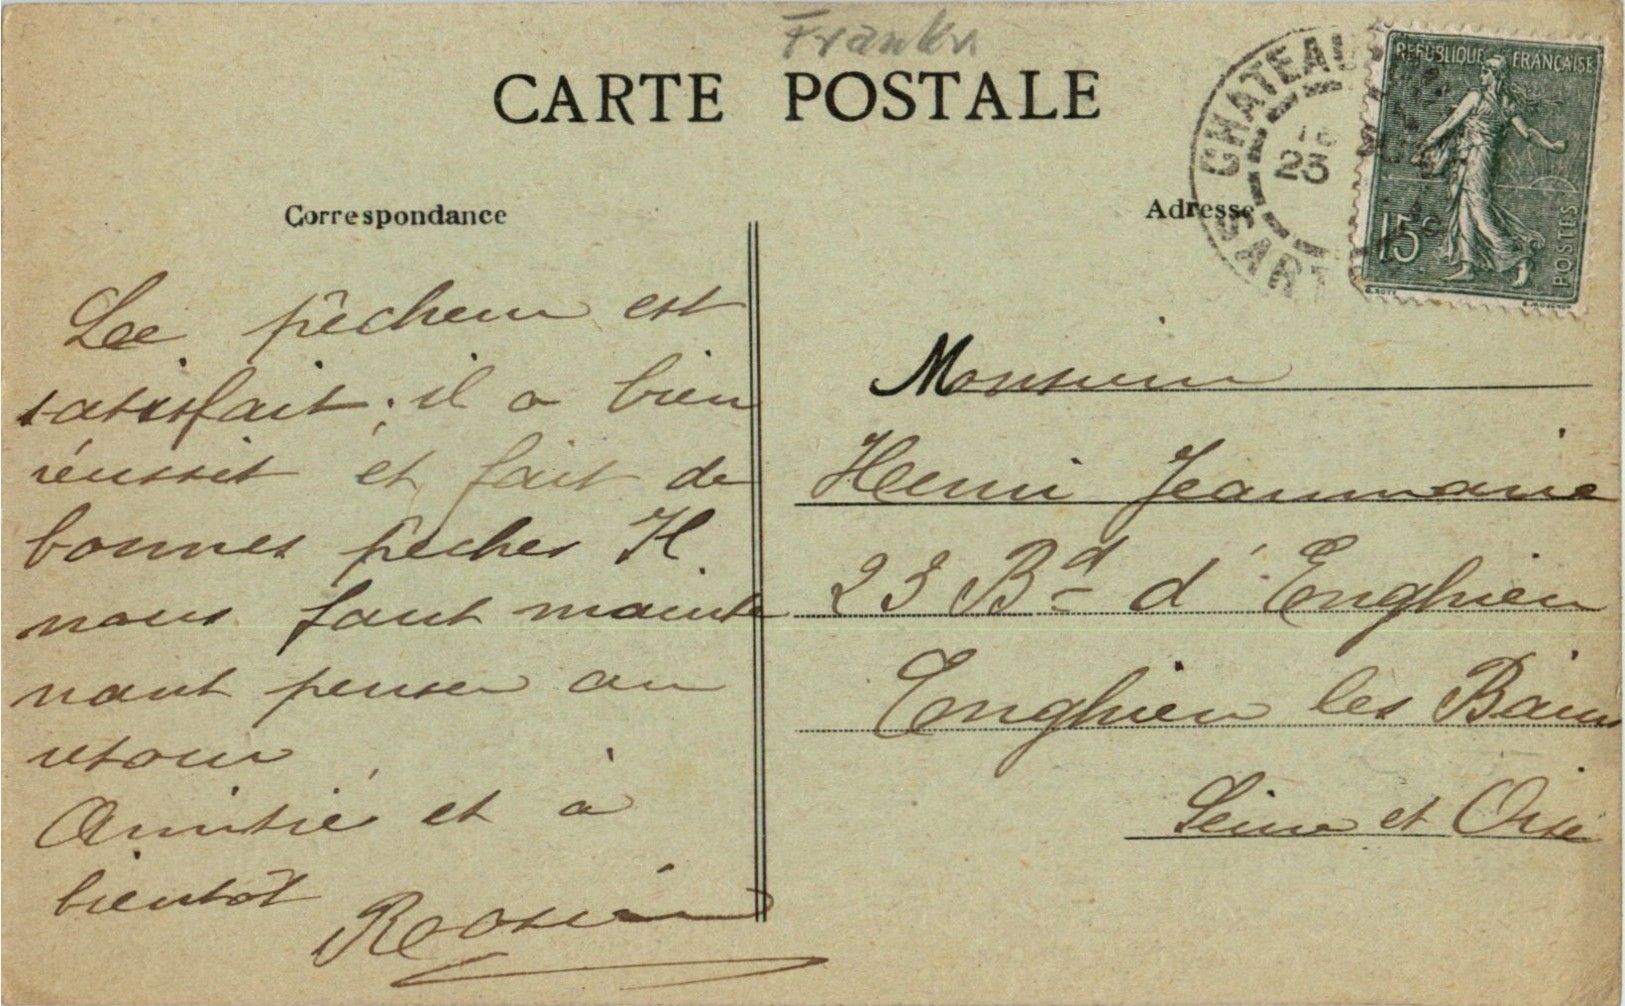 CARTE POSTALE
Correspondance
Le pêcheur est
satisfait; il a bien
réussit et fait de
bonnes pêches Il
nous faut mainte
nant penser au
retour
Amitié et à
bientôt
Adresse
CHATEAU
SART
RÉPUBLIQUE FRANÇAISE
15c
POSTES
Monsieur
Henri Jeanmarie
23 Bd d'Enghien
Enghien les Bains
Seine et Oise